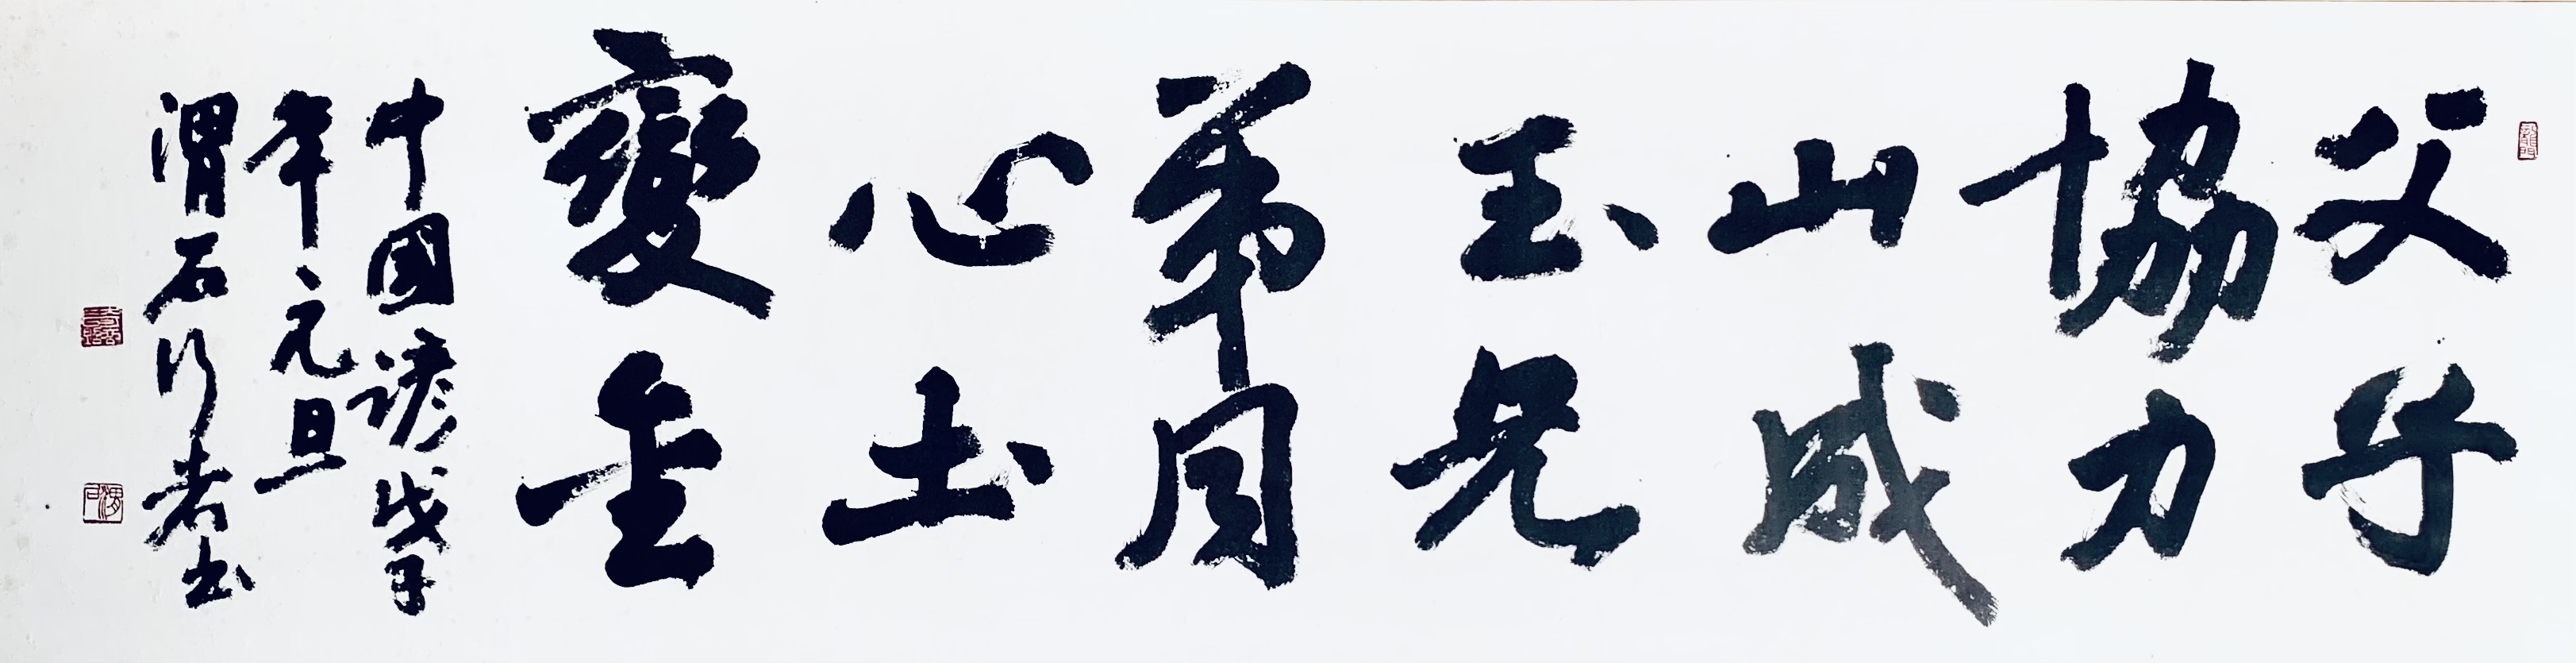 父子
協力
山成
玉兄
弟同
心土
變金
中國諺戊子
年元旦
渭石行者书